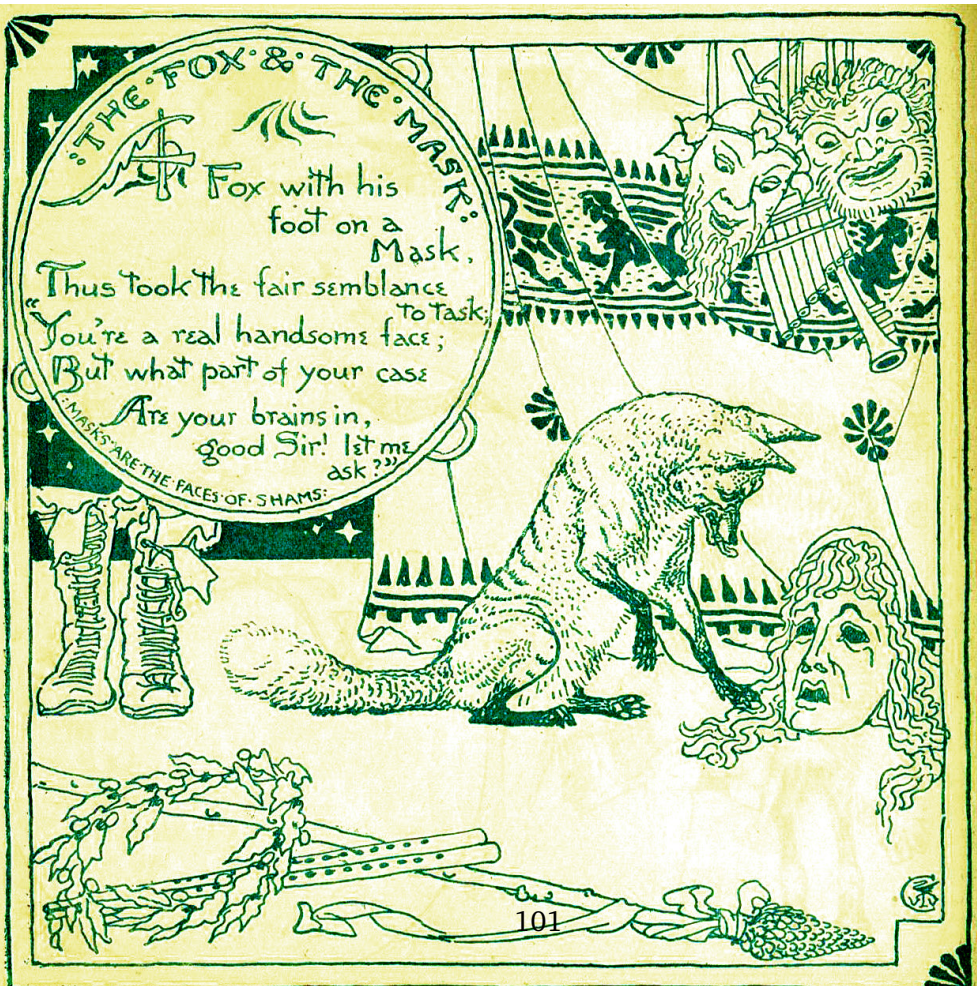 "THE·FOX·&·THE·MASK"
A Fox with his
foot on a
Mask,
Thus took the fair semblance
to task;
"You're a real handsome face;
But what part of your case
Are your brains in,
good Sir! let me
ask?"
:MASKS·ARE·THE·FACES·OF·SHAMS:
101